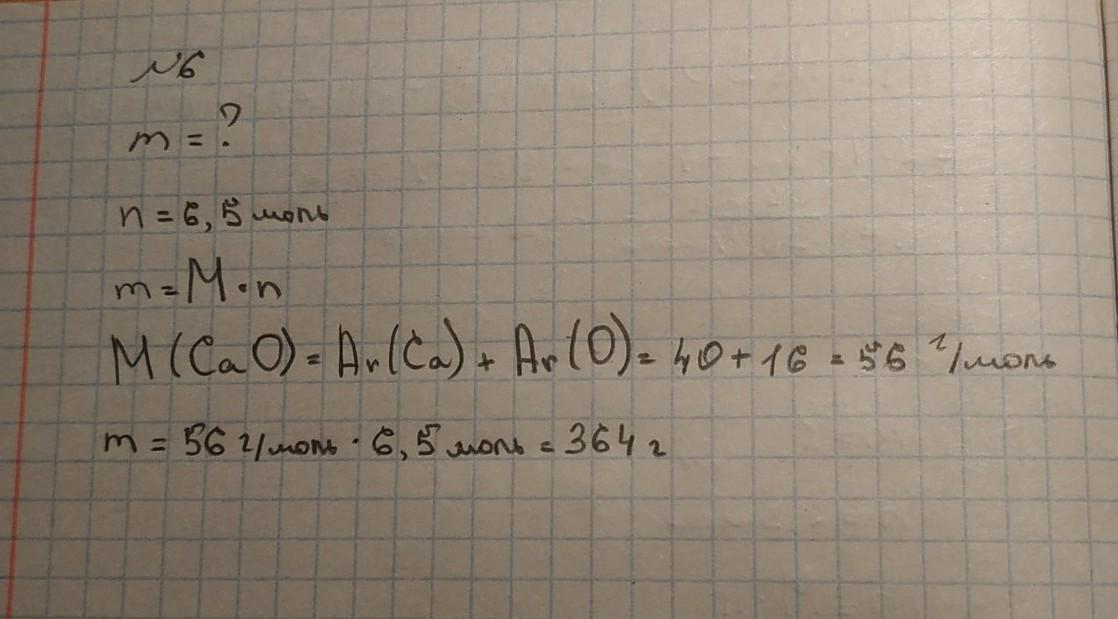 №6
m = ?
n = 6,5 моль
m = M · n
M (CaO) = Ar(Ca) + Ar(O) = 40 + 16 = 56 г/моль
m = 56 г/моль · 6,5 моль = 364 г